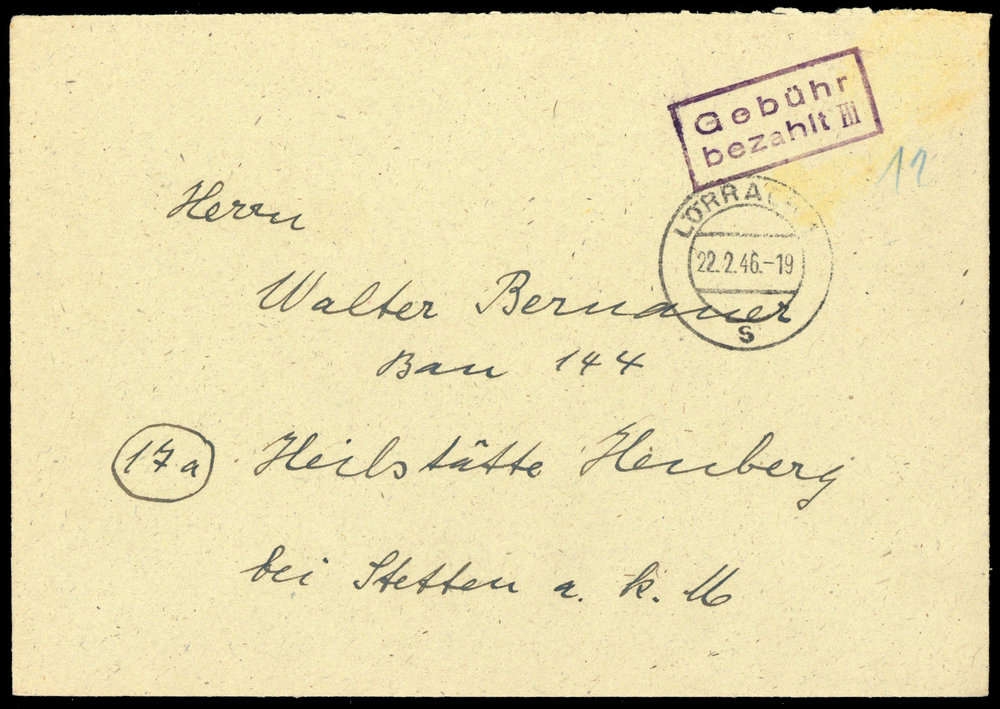 Gebühr
bezahlt III
12
LÖRRACH
22.2.46.-19
s
Herrn
Walter Bernauer
Bau 144
17a Heilstätte Heuberg
bei Stetten a. k. M